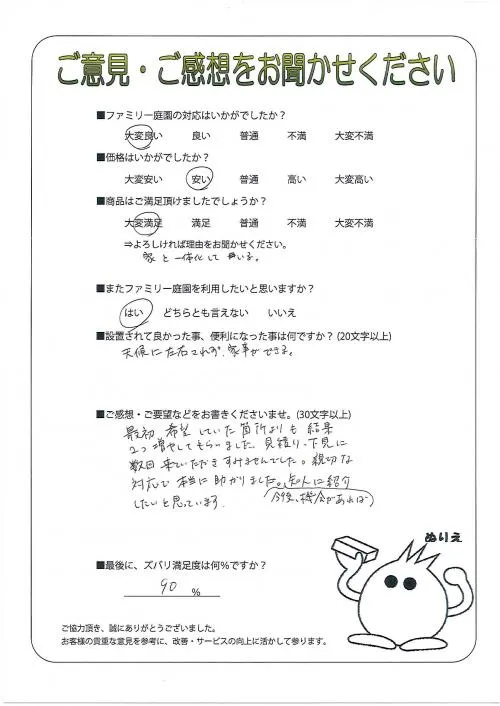 ご意見・ご感想をお聞かせください
■ファミリー庭園の対応はいかがでしたか？
大変良い 良い 普通 不満 大変不満
■価格はいかがでしたか？
大変安い 安い 普通 高い 大変高い
■商品はご満足頂けましたでしょうか？
大変満足 満足 普通 不満 大変不満
⇒よろしければ理由をお聞かせください。
家と一体化して いる。
■またファミリー庭園を利用したいと思いますか？
はい どちらとも言えない いいえ
■設置されて良かった事、便利になった事は何ですか？(20文字以上)
天候に左右されず、家事ができる。
■ご感想・ご要望などをお書きくださいませ。(30文字以上)
最初 希望していた箇所よりも 結果
2つ増やしてもらいました。見積り、下見に
数回 来ていただき すみませんでした。親切な
対応で 本当に 助かりました。知人に紹介
したいと思っています。 (今後、機会があれば)
ぬりえ
■最後に、ズバリ満足度は何%ですか？
90 %
ご協力頂き、誠にありがとうございました。
お客様の貴重な意見を参考に、改善・サービスの向上に活かして参ります。